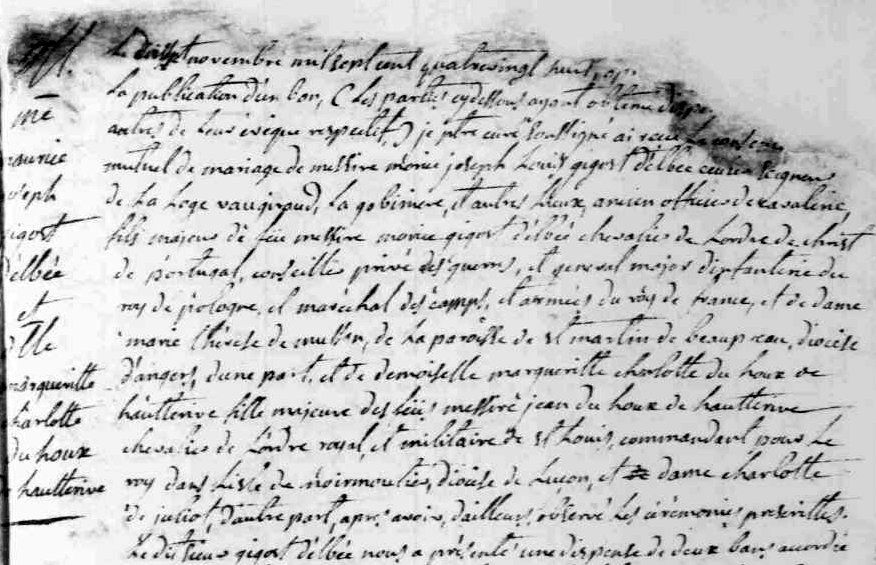 Mr.
mre
maurice
joseph
gigost
d'élbée
et
Dlle
margueritte
charlotte
du houx
de hautterive
Le dixsept novembre mil sept cent quatrevingt huit, après
la publication d'un ban, (les parties cydessous ayant obtenu dispense
de leur évêque respectif,) je ptre curé soussigné ai recu le consentement
mutuel de mariage de messire morice joseph Louis gigost d'élbée ecuier seigneur
de la Loge vaugiraud, la gobiniere, et autres Lieux, ancien officier de cavalerie,
fils majeur de feu messire morice gigost d'élbée chevalier de Lordre de christ
de portugal, conseiller privé des guerres, et general major d'infanterie du
roy de pologne, et maréchal des camps, et armées du roy de france, et de dame
marie thérèse de mussen, de la paroisse de st martin de beaupreau, diocèse
d'angers, d'une part, et de demoiselle margueritte charlotte du houx de
hautterive fille majeure des feüs messire jean du houx de hautterive
chevalier de Lordre royal, et militaire de st Louis, commandant pour Le
roy dans Lisle de noirmoutier, diocèse de Luçon, et dame charlotte
de juliot, d'autre part, apres avoir, d'ailleurs, observé Les cérémonies prescrittes.
Le dit sieur gigost d'élbée nous a présenté une dispense de deux bans accordée